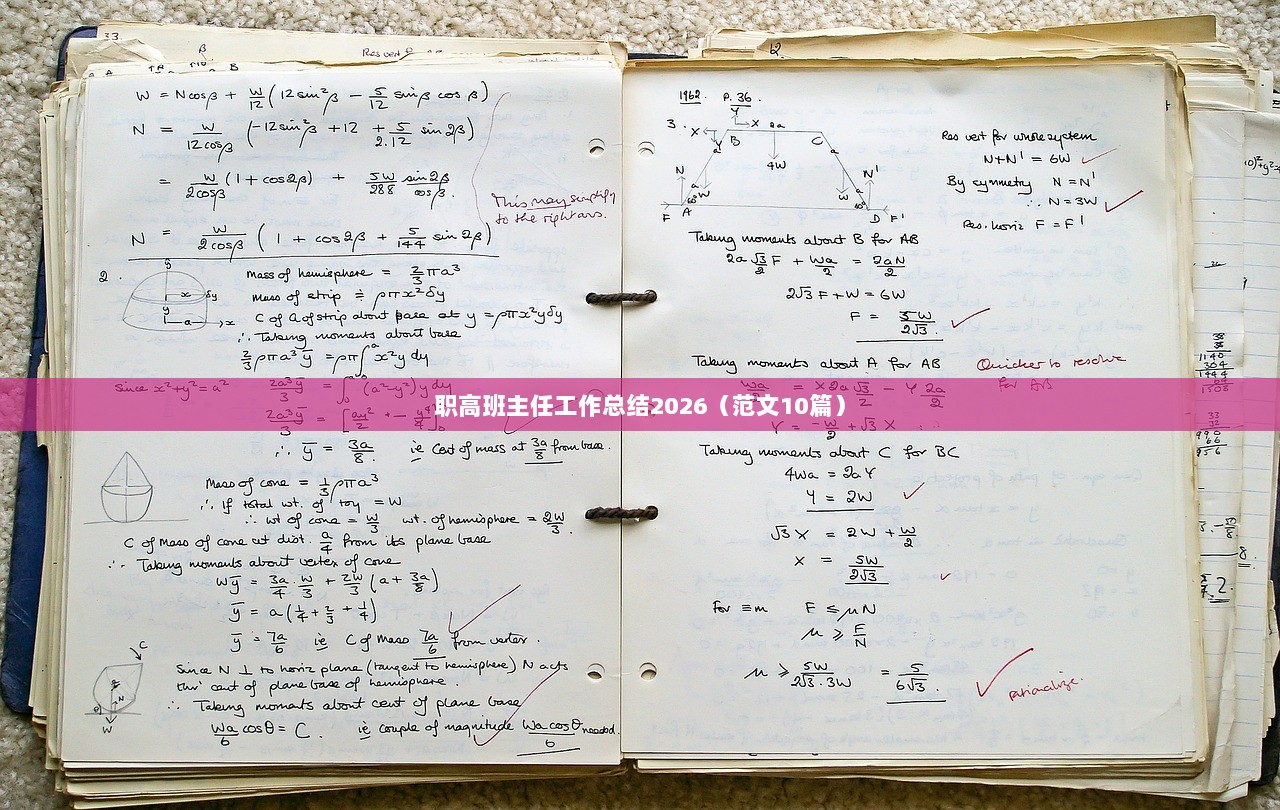 33.
Res vert
W = N cosβ + W/12 ( 12 sin²β − 5/12 sinβ cosβ )
N = W/12cosβ ( −12 sin²β + 12 + 5/2.12 sin 2β )
= W/2cosβ (1 + cos2β) + 5W/288 sin2β/cosβ.
This may simplify
to the right ans.
N = W/2cosβ ( 1 + cos2β + 5/144 sin 2β )
2.
Mass of hemisphere = 2/3 πa³
Mass of strip ≑ ρπx²δy
C of G of strip about base at y = ρπx²yδy
∴ Taking moments about base
2/3 ρπa³ȳ = ρπ∫x²y dy
Since x²+y²=a² 2a³ȳ/3 = ∫(a²−y²)y dy
∴ ȳ = 3a/8. ie Cent of mass at 3a/8 from base.
Mass of cone = 1/3 ρπa³
∴ If total wt. of toy = W
∴ wt of cone = W/3 wt. of hemisphere = 2W/3.
C of Mass of cone at dist. a/4 from its plane base
∴ Taking moments about vertex of cone
Wȳ = 3a/4 · W/3 + 2W/3 (a + 3a/8)
ȳ = a(1/4 + 2/3 + 1/4)
ȳ = 7a/6 ie C of Mass 7a/6 from vertex.
Since N ⊥ to horiz plane (tangent to hemisphere) N acts
thro' cent of plane base of hemisphere.
∴ Taking moments about cent of plane base
Wa/6 cosθ = C. ie couple of magnitude Wa cosθ/6 needed.
职高班主任工作总结2026（范文10篇）
1962. P. 36.
3.
Res vert for whole system
N+N' = 6W
By symmetry N = N'
∴ N = 3W
Res. horiz F = F'
Taking moments about B for AB
2a √3/2 F + Wa/2 = 2aN/2
2√3 F + W = 6W
F = 5W/2√3.
Taking moments about A for AB
Quicker to resolve
for AB
Wa/2 = X2a√3/2 − Y 2a/2
Y = −W/2 + √3 X
Taking moments about C for BC
4Wa = 2aY
Y = 2W
√3 X = 2W + W/2
X = 5W/2√3
For ≡m F ≤ μN
μ ≥ F/N
μ ≥ 5W/2√3.3W = 5/6√3.
rationalize.